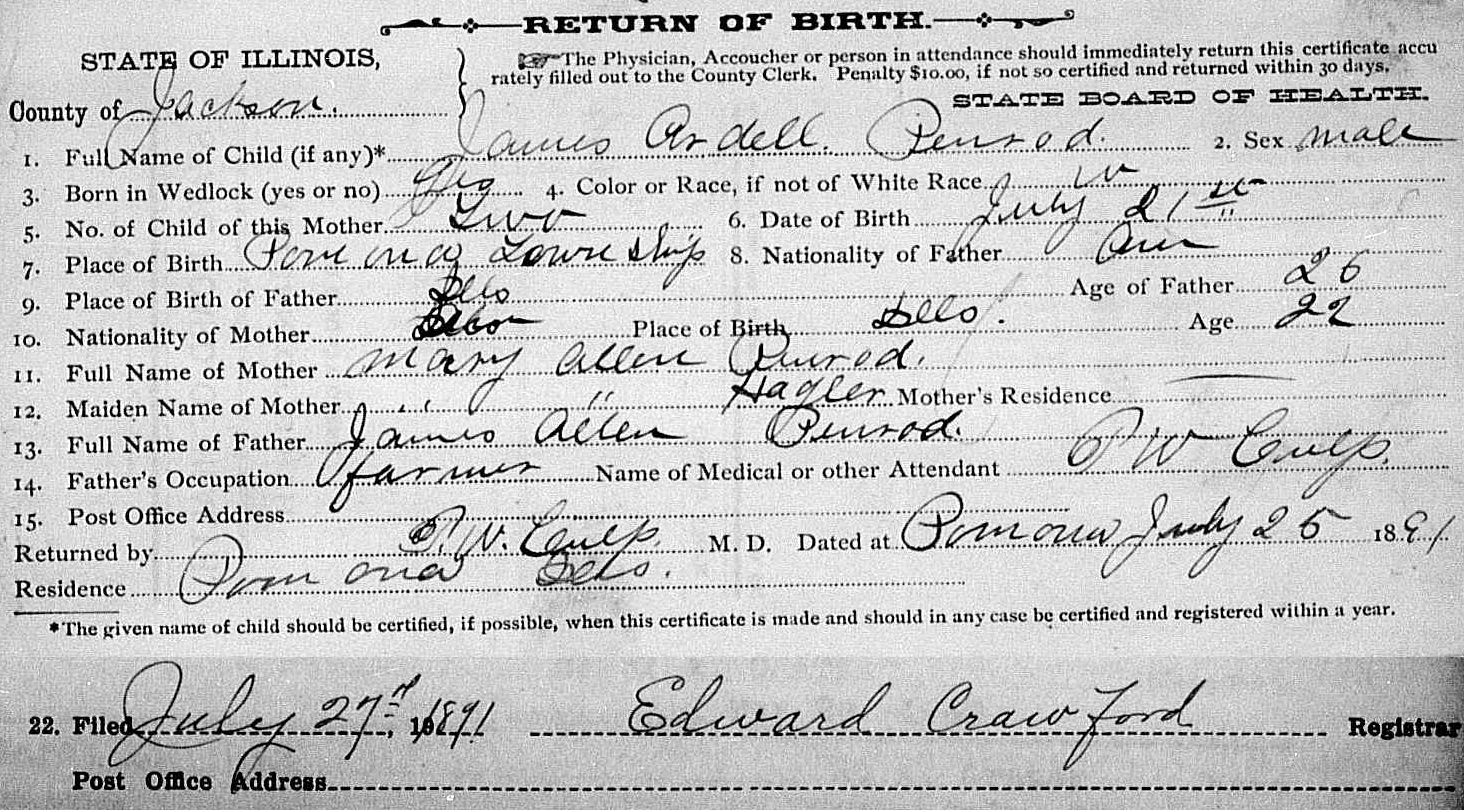 RETURN OF BIRTH.
STATE OF ILLINOIS,
The Physician, Accoucher or person in attendance should immediately return this certificate accu
rately filled out to the County Clerk. Penalty $10.00, if not so certified and returned within 30 days.
County of Jackson.
STATE BOARD OF HEALTH.
1. Full Name of Child (if any)* James Ardell. Penrod. 2. Sex male
3. Born in Wedlock (yes or no) Yes 4. Color or Race, if not of White Race W
5. No. of Child of this Mother Two 6. Date of Birth July 21st
7. Place of Birth Pomona Township 8. Nationality of Father Am
9. Place of Birth of Father Ills Age of Father 26
10. Nationality of Mother Place of Birth Ills. Age 22
11. Full Name of Mother Mary Allen Penrod.
12. Maiden Name of Mother " " Hagler Mother's Residence
13. Full Name of Father James Allen Penrod.
14. Father's Occupation farmer Name of Medical or other Attendant P W Culp.
15. Post Office Address
Returned by P. W. Culp. M. D. Dated at Pomona July 25 1891
Residence Pomona Ills.
*The given name of child should be certified, if possible, when this certificate is made and should in any case be certified and registered within a year.
22. Filed July 27th, 1891 Edward Crawford Registrar
Post Office Address